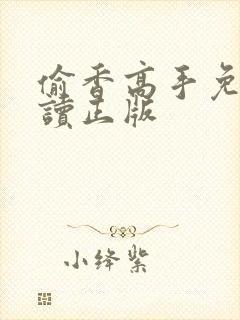 偷香高手免
讀正版
小绛紫